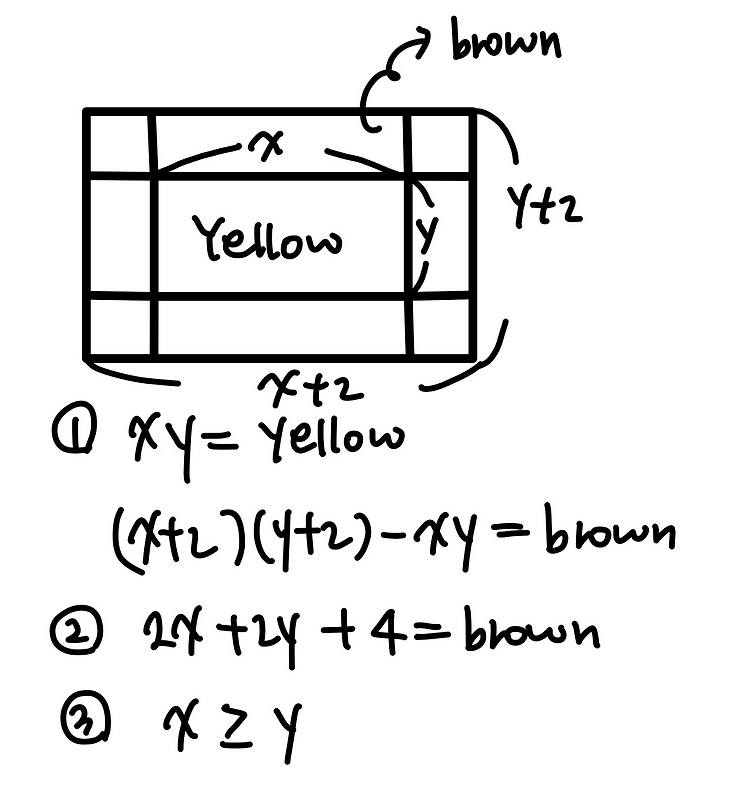 brown
x
y+2
Yellow
y
x+2
① xy = Yellow
(x+2)(y+2) - xy = brown
② 2x + 2y + 4 = brown
③ x ≥ y